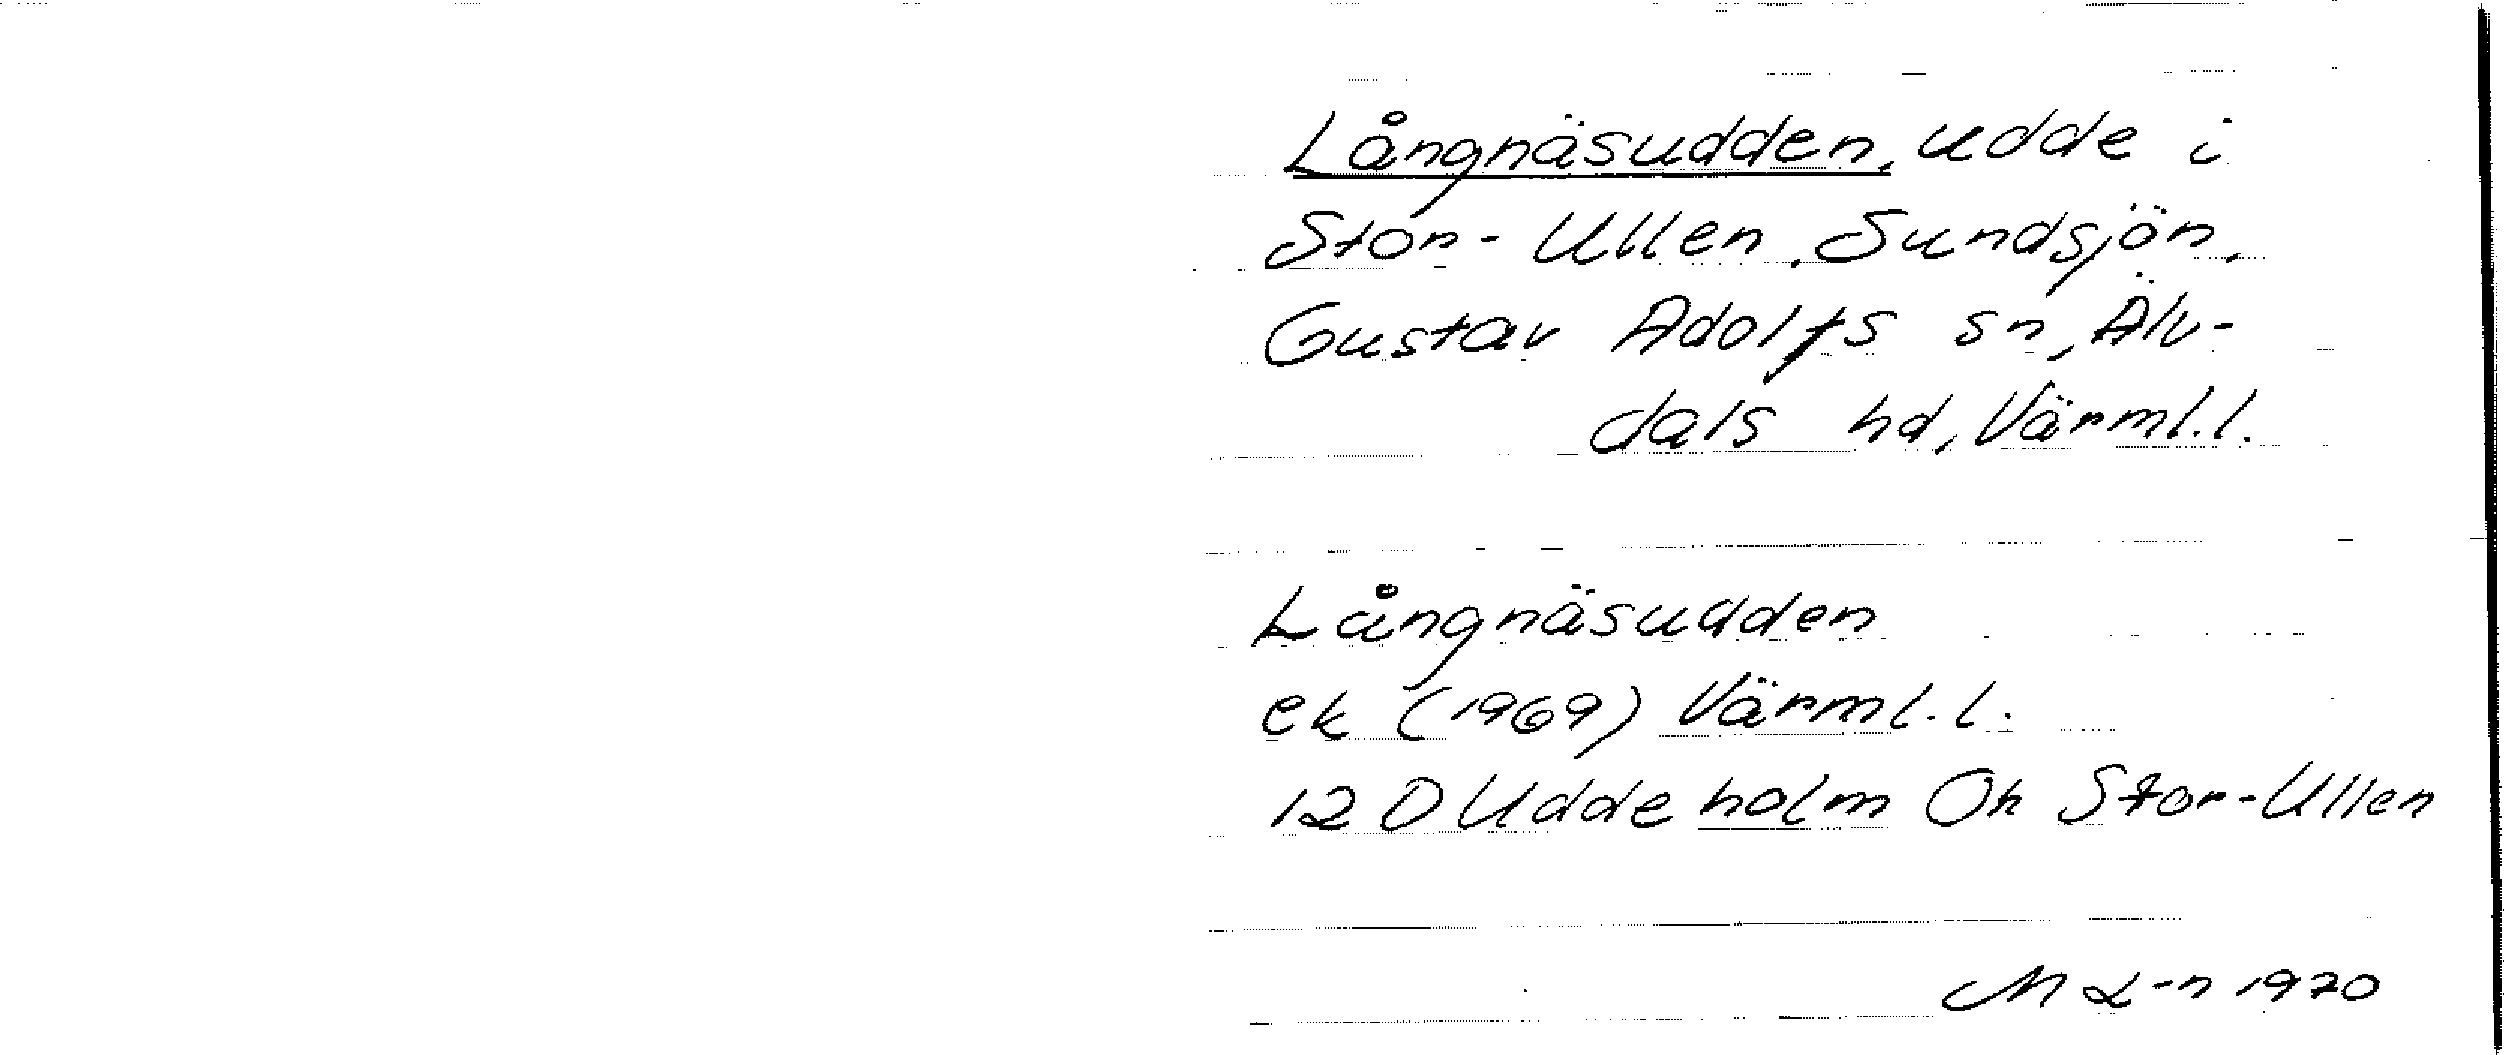 Långnäsudden, udde i
Stor-Ullen, Sundsjön,
Gustav Adolfs sn, Älv-
dals hd, Värml.l.
Långnäsudden
ek (1969) Värml.l.
12 D Uddeholm Ok Stor-Ullen
M L-n 1970